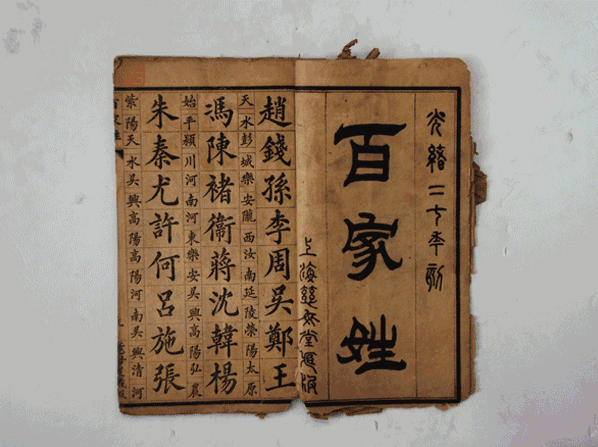 光緒二七年刻
百家姓
上海堂
趙錢孫李周吳鄭王
天水彭城樂安隴西汝南延陵滎陽太原
馮陳褚衞蔣沈韓楊
始平潁川河南河東樂安吳興高陽弘農
朱秦尤許何呂施張
紫陽天水吳興高陽高陽河南吳興清河
百家姓